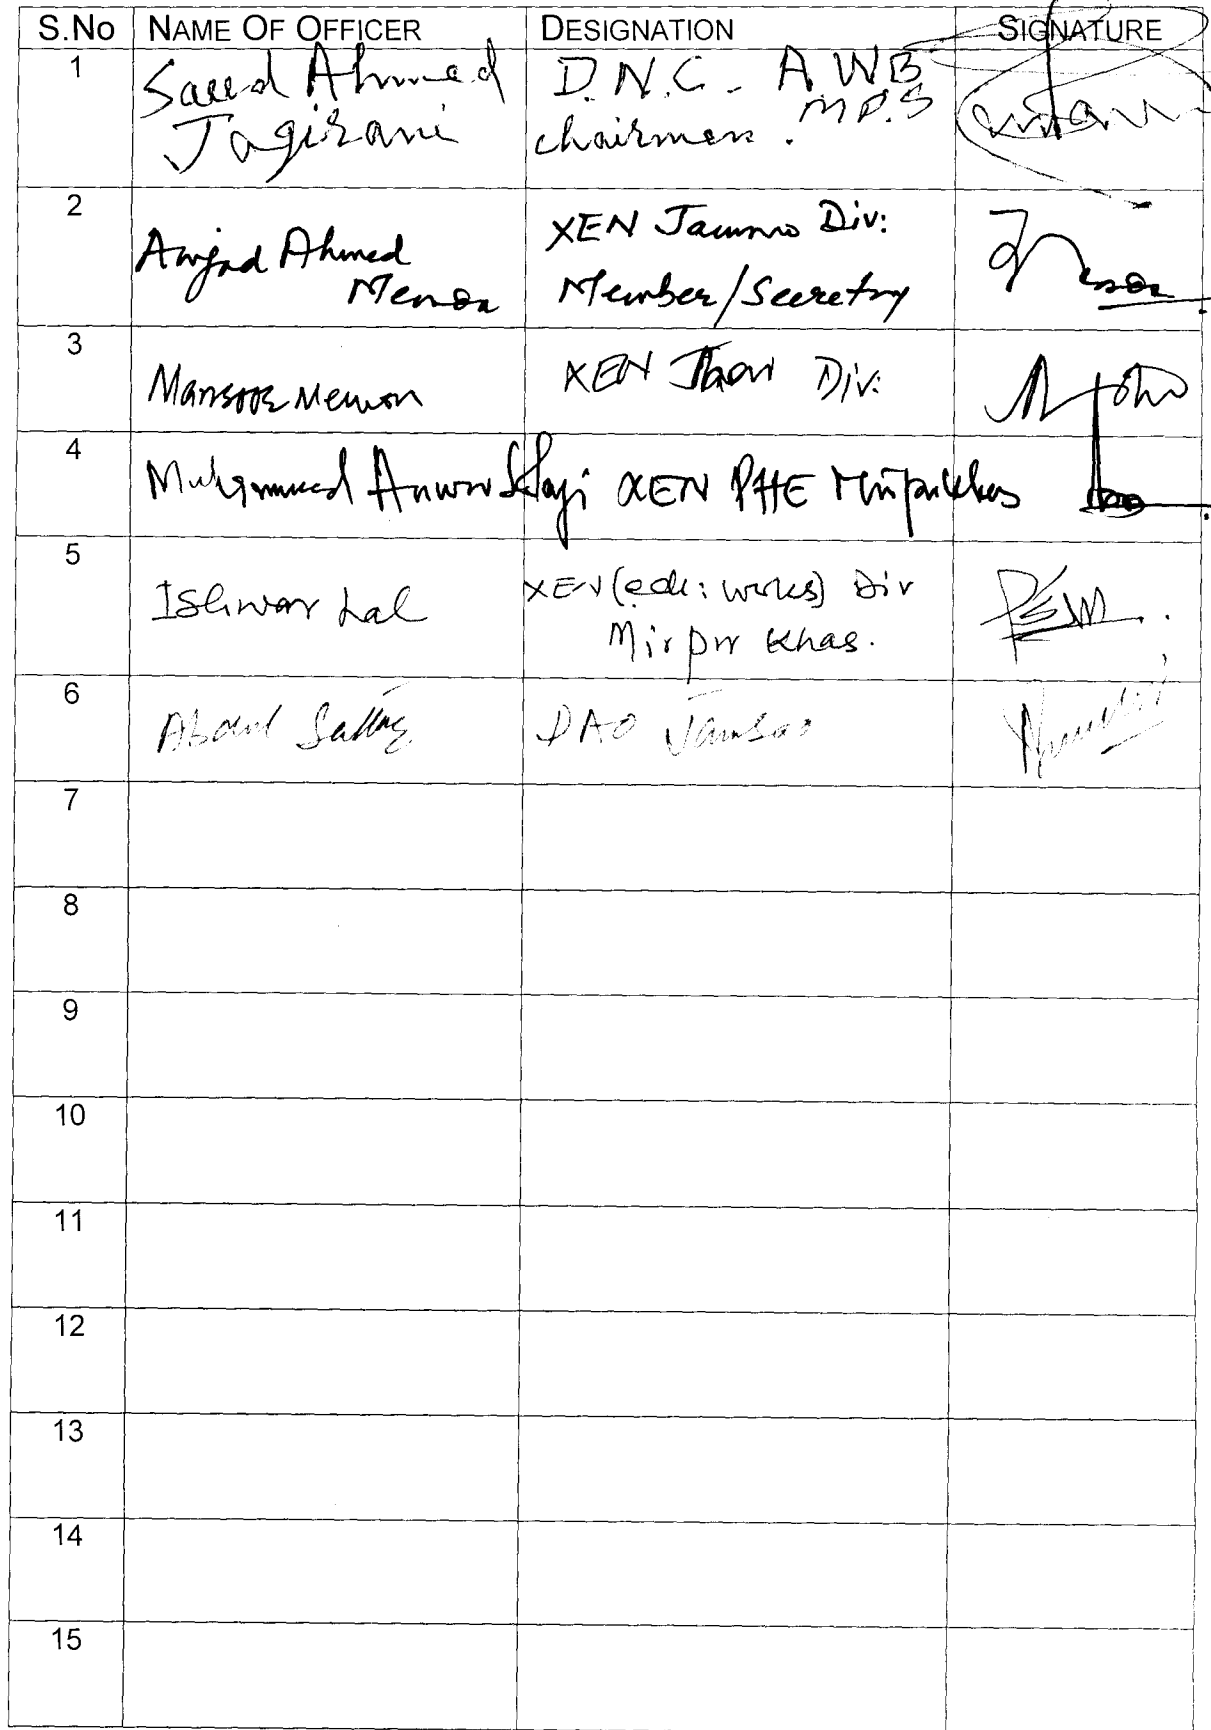 S.No NAME OF OFFICER DESIGNATION SIGNATURE
1 Saeed Ahmed D.N.C. - AWB
Jagirani chairman. M.P.S
2 Amjad Ahmed XEN Jamrao Div:
Memon Member/Secretry
3 Mansoor Memon XEN Thar Div:
4 Muhammad Anwar XEN PHE Mirpurkhas
5 Ishwar Lal XEN (edu: works) Div
Mirpur Khas.
6 Abdul Sattar DAO Jamrao
7
8
9
10
11
12
13
14
15